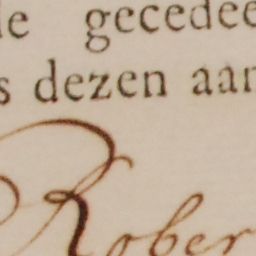 le gecedee
s dezen aan
Rober